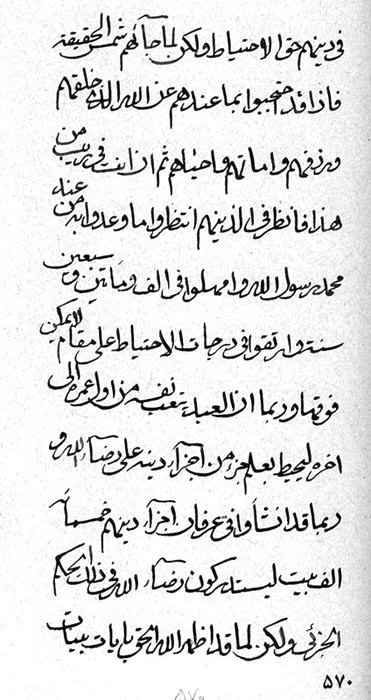 في دينهم حق الاحتياط ولكن لما جائهم شمس الحقيقة
فاذا قد احتجبوا بما عندهم عن الله الذي خلقهم
ورزقهم واماتهم واحياهم ثم ان انت في ريب من
هذا فانظر في الذينهم انتظروا ما وعدوا به من عند
محمد رسول الله وامهلوا في الف ومأتين و سبعين
سنة وارتقوا في درجات الاحتياط على مقام لا يمكن
فوقها وربما ان العبد يتعب نفسه من اول عمره الى
اخره ليحيط بعلم جزء من اجزآء دينه على رضآء الله و
ربما قد انشأوا في عرفان اجزآء دينهم خمسمأة
الف بيت ليستدركون رضآء الله في ذلك الحكم
الجزئي ولكن لما قد اظهر الله الحق بايات بينات
۵۷۰
۵۷۰